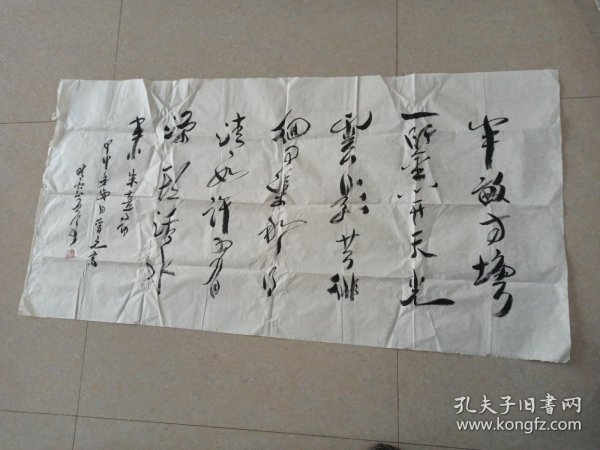 半畝方塘
一鑒开天光
雲影共徘
徊问渠那得
清如许为有
源头活水
来 朱熹诗
甲申年
孔夫子旧书网
www.kongfz.com